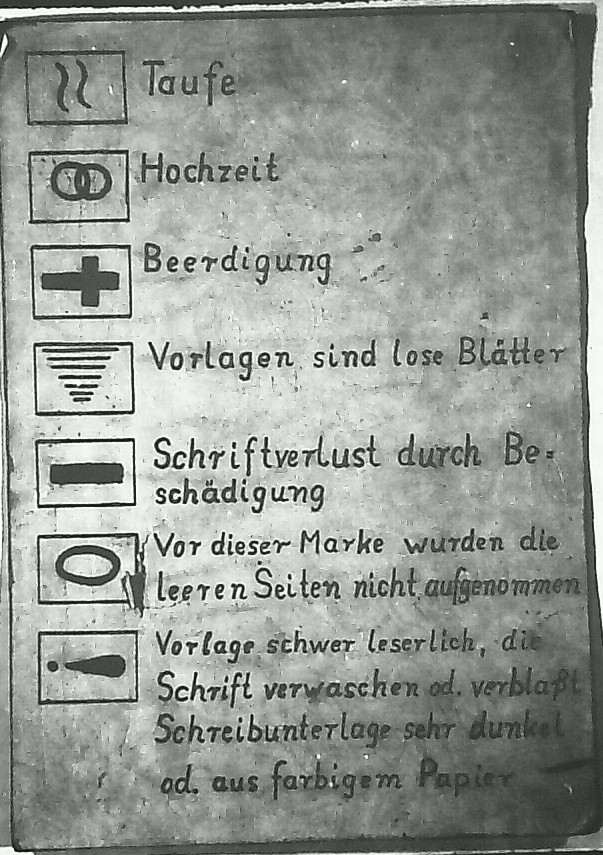 Taufe
Hochzeit
Beerdigung
Vorlagen sind lose Blätter
Schriftverlust durch Be-
schädigung
Vor dieser Marke wurden die
leeren Seiten nicht aufgenommen
Vorlage schwer leserlich, die
Schrift verwaschen od. verblaßt
Schreibunterlage sehr dunkel
od. aus farbigem Papier